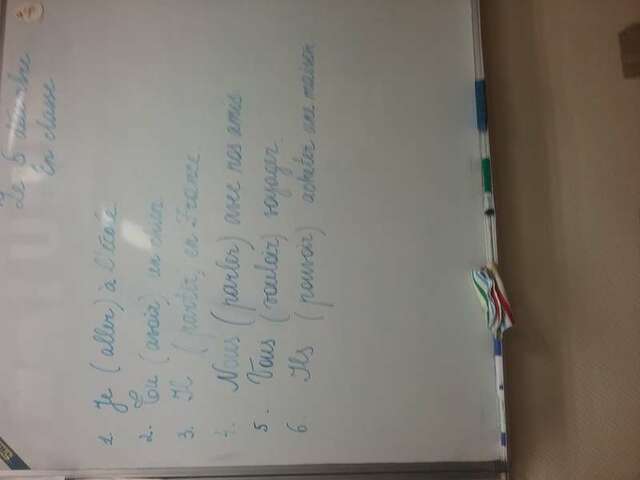 Le 5 décembre
En classe
1. Je (aller) à l'école
2. Tu (avoir) un chien
3. Il (partir) en France
4. Nous (parler) avec nos amis
5. Vous (vouloir) voyager
6. Ils (pouvoir) acheter une maison